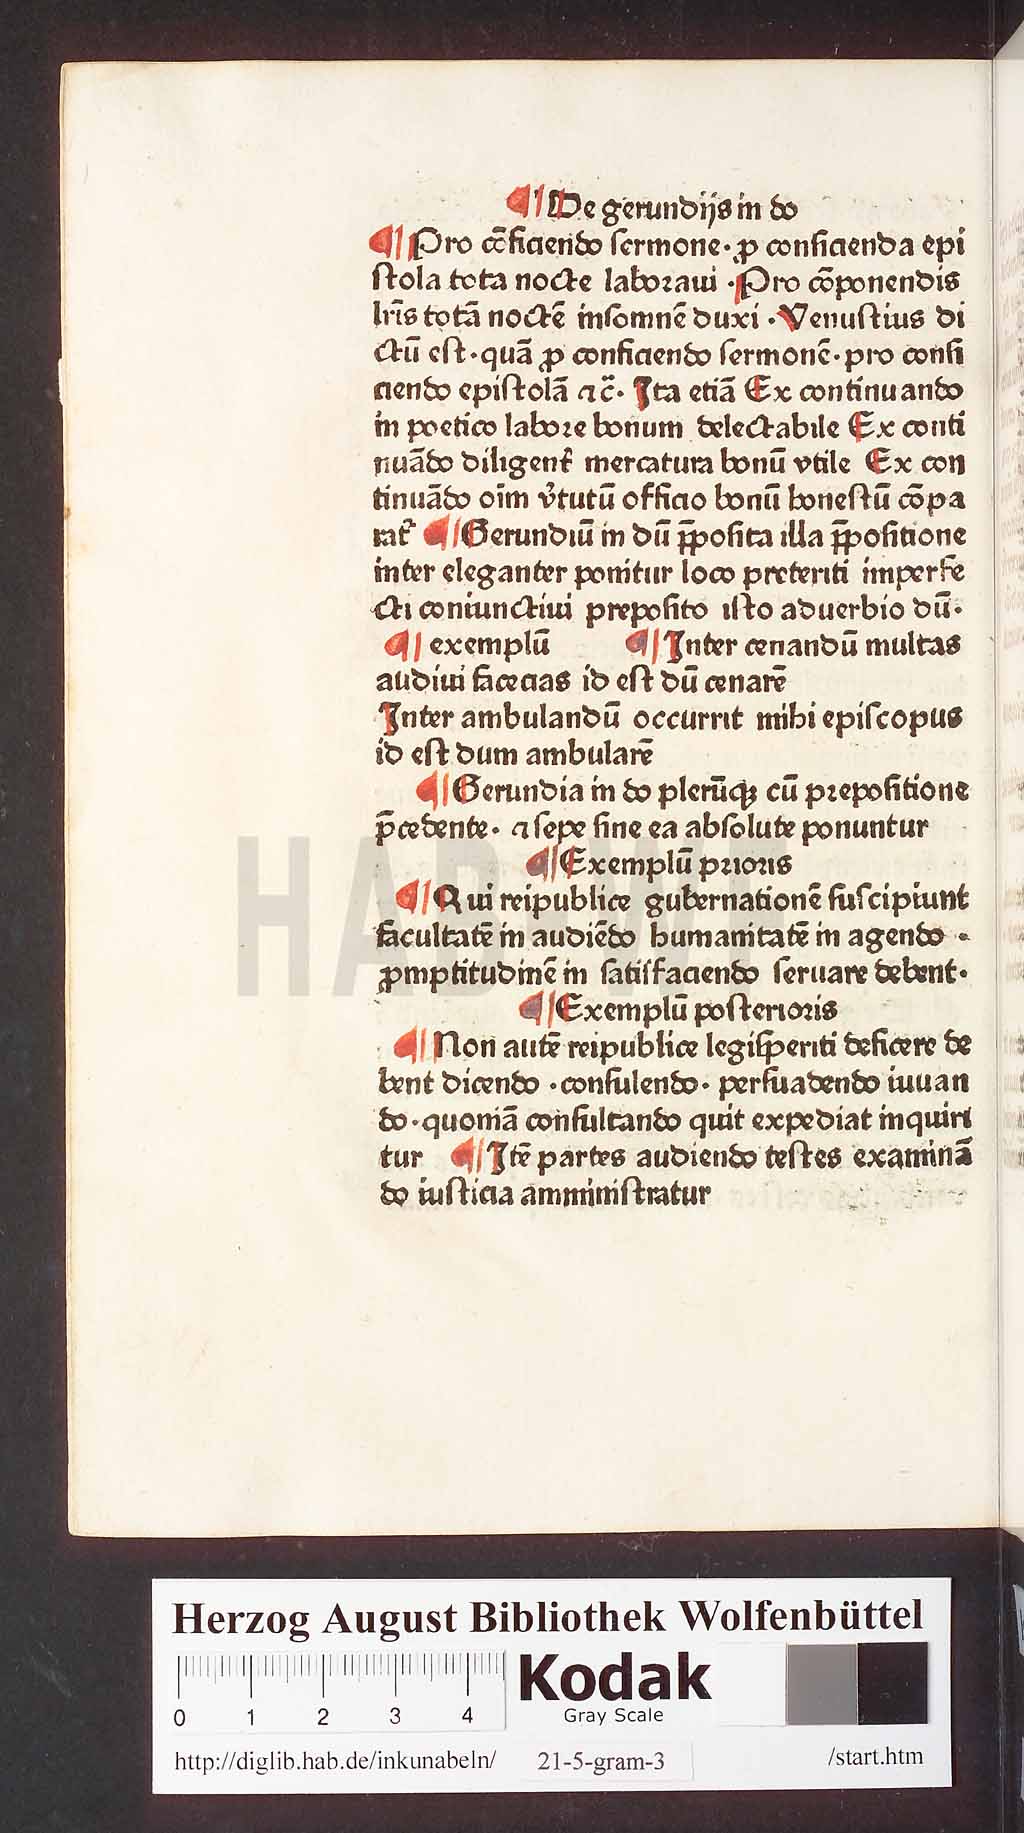 ¶ De gerundijs in do
¶ Pro cōficiendo sermone · ꝓ conficienda epi
stola tota nocte laboraui · Pro cōponendis
lr̄is totā noctē insomnē duxi · Venustius di
ctū est · quā ꝓ conficiendo sermonē · pro confi
ciendo epistolā ⁊c̄ · Ita etiā Ex continuando
in poetico labore bonum delectabile Ex conti
nuādo diligent᷑ mercatura bonū vtile Ex con
tinuādo oīm v̓tutū officio bonū honestū cōpa
rat᷑ ¶ Gerundiū in dū p̄posita illa p̄positione
inter eleganter ponitur loco preteriti imperfe
cti coniunctiui preposito isto aduerbio dū ·
¶ exemplū ¶ Inter cenandū multas
audiui facecias id est dū cenarē
Inter ambulandū occurrit mihi episcopus
id est dum ambularē
¶ Gerundia in do plerūqꝫ cū prepositione
p̄cedente · ⁊ sepe sine ea absolute ponuntur
¶ Exemplū prioris
¶ Qui reipublice gubernationē suscipiunt
facultatē in audiēdo humanitatē in agendo ·
ꝓmptitudinē in satisfaciendo seruare debent ·
¶ Exemplū posterioris
¶ Non autē reipublice legisꝑeriti deficere de
bent dicendo · consulendo · persuadendo iuuan
do · quoniā consultando quit expediat inquiri
tur ¶ Itē partes audiendo testes examinā
do iusticia amministratur
HAB WF
Herzog August Bibliothek Wolfenbüttel
0 1 2 3 4
Kodak
Gray Scale
http://diglib.hab.de/inkunabeln/ 21-5-gram-3 /start.htm